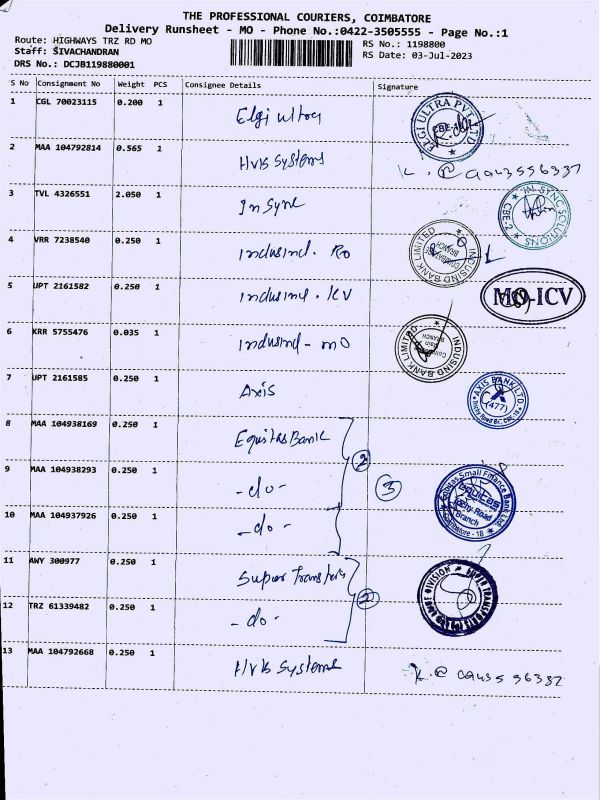 THE PROFESSIONAL COURIERS, COIMBATORE
Delivery Runsheet - MO - Phone No.:0422-3505555 - Page No.:1
Route: HIGHWAYS TRZ RD MO
RS No.: 1198800
Staff: SIVACHANDRAN
RS Date: 03-Jul-2023
DRS No.: DCJB119880001
S No Consignment No Weight PCS Consignee Details Signature
1 CGL 70023115 0.200 1 Elgi ultra
2 MAA 104792814 0.565 1 Hvk Systems
3 TVL 4326551 2.050 1 InSync
4 VRR 7238540 0.250 1 Indusind. Ro
5 UPT 2161582 0.250 1 Indusind. ICV
MO-ICV
6 KRR 5755476 0.035 1 Indusind - mo
7 UPT 2161585 0.250 1 Axis
8 MAA 104938169 0.250 1 Equitas Bank
9 MAA 104938293 0.250 1 -do-
3
10 MAA 104937926 0.250 1 -do-
11 AWY 300977 0.250 1 Super Transports
12 TRZ 61339482 0.250 1 -do-
13 MAA 104792668 0.250 1 Hvk Systems
ELGI ULTRA PVT LTD
IN SYNC SOLUTIONS
CBE-2
INDUSIND BANK LIMITED
INDUSIND BANK LIMITED
AXIS BANK LTD
(477)
Equitas Small Finance Bank Ltd.
equitas
Branch
Coimbatore - 18